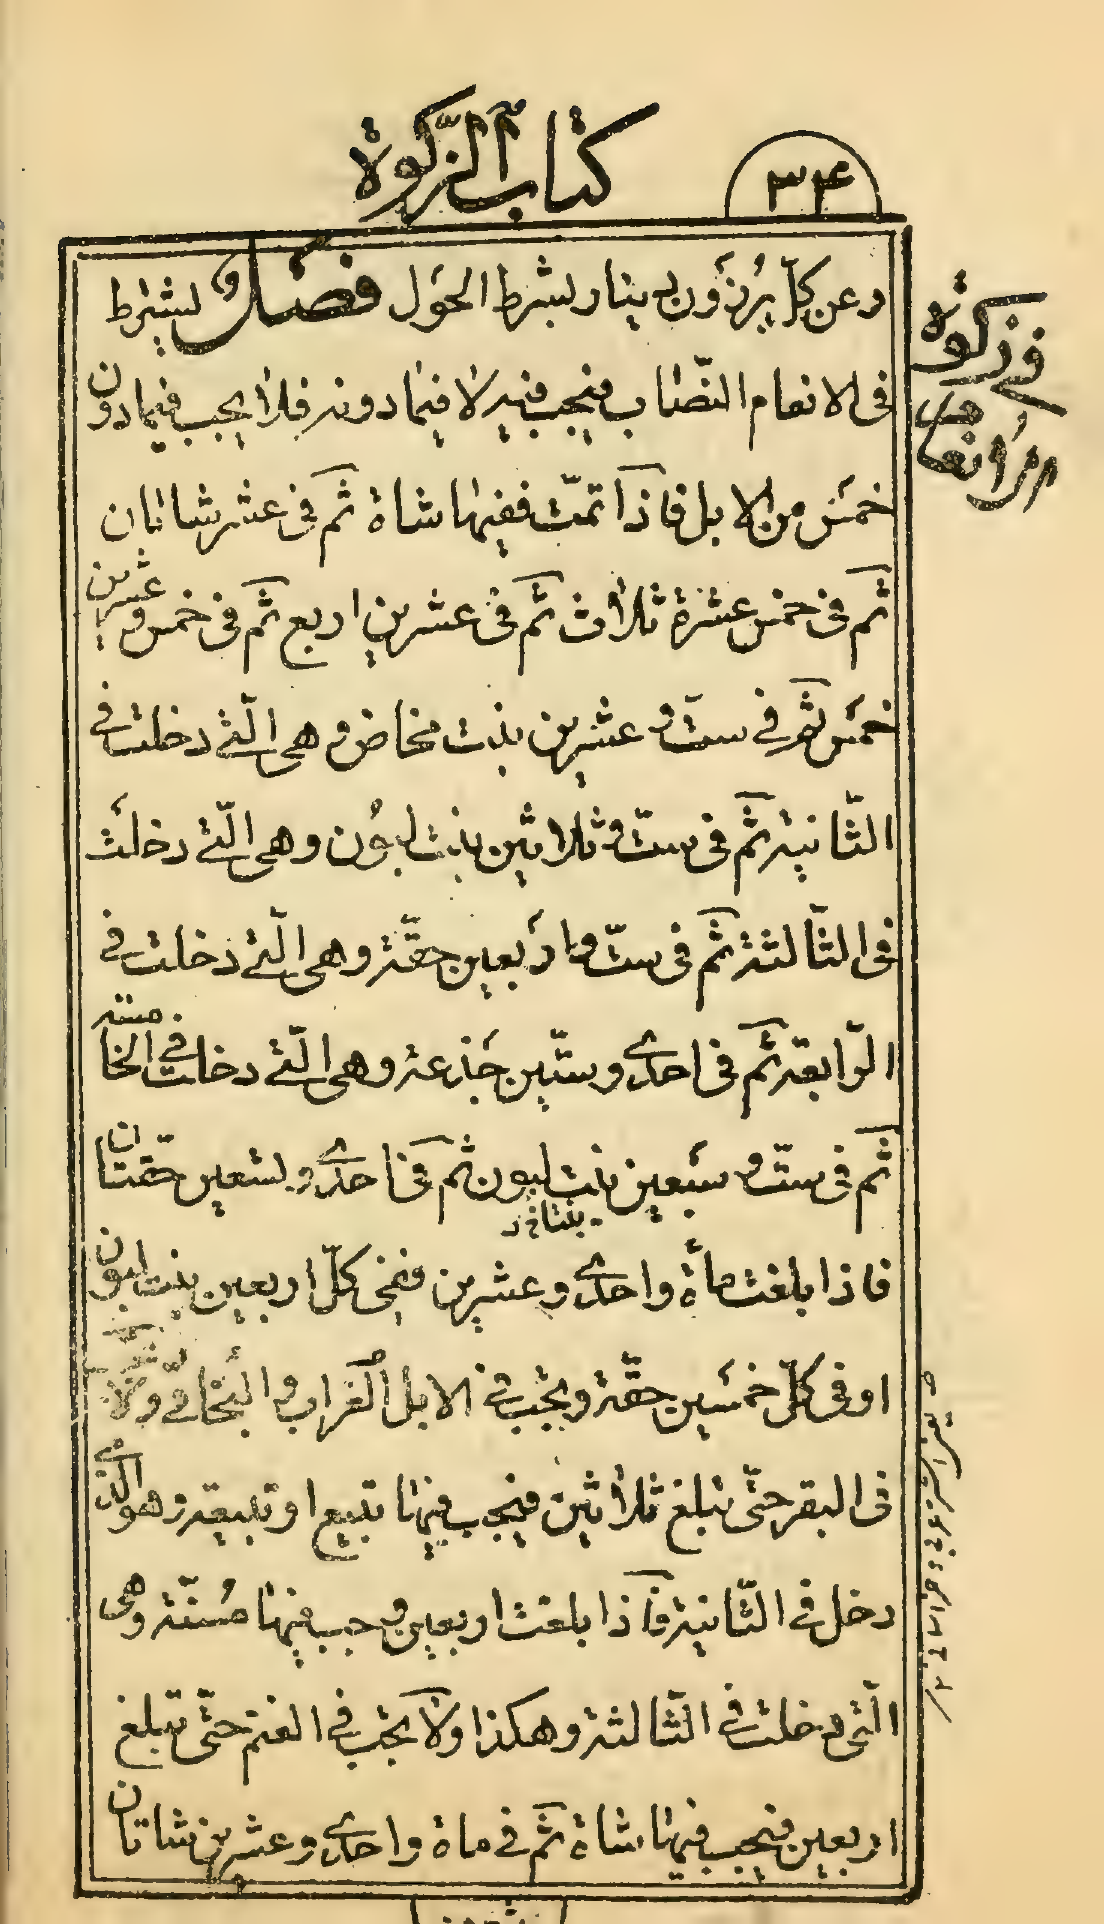 كتاب الزّكوة
٣٤
وعن كلّ برذون دينار بشرط الحَول فصل ويشترط
فى الانعام النّصاب فيجب فيه لا فيما دونه فلا يجب فيما دون
خمس من الابل فاذا تمّت ففيها شاة ثمّ فى عشر شاتان
ثمّ فى خمس عشرة ثلاث ثمّ فى عشرين اربع ثمّ فى خمس و عشرين
خمس ثمّ في ستّ و عشرين بنت مخاض و هى الّتي دخلت في
الثّانية ثمّ فى ستّ و ثلاثين بنت لبُون و هى الّتي دخلت
فى الثّالثة ثمّ فى ستّ و اربعين حقّة و هى الّتي دخلت في
الرّابعة ثمّ فى احدى و ستّين جذعة و هى الّتي دخلت في الخامسة
ثمّ فى ستّ و سبعين بنت لبون ثمّ فى احدى و تسعين حقّتان
بنتا خ‌د
فاذا بلغت مأة و احدى و عشرين ففى كلّ اربعين بنت لبون
او فى كلّ خمسين حقّة و يجب في الابل العراب و البخاتي ولا
فى البقر حتّى تبلغ ثلاثين فيجب فيها تبيع او تبيعة و هو الّذي
دخل في الثّانية فاذا بلغت اربعين وجب فيها مُسنّة وهى
الّتى دخلت في الثّالثة و هكذا ولا يجب في الغنم حتّى تبلغ
اربعين فيجب فيها شاة ثمّ في ماة و احدى و عشرين شاتان
في زكوة
الانعام